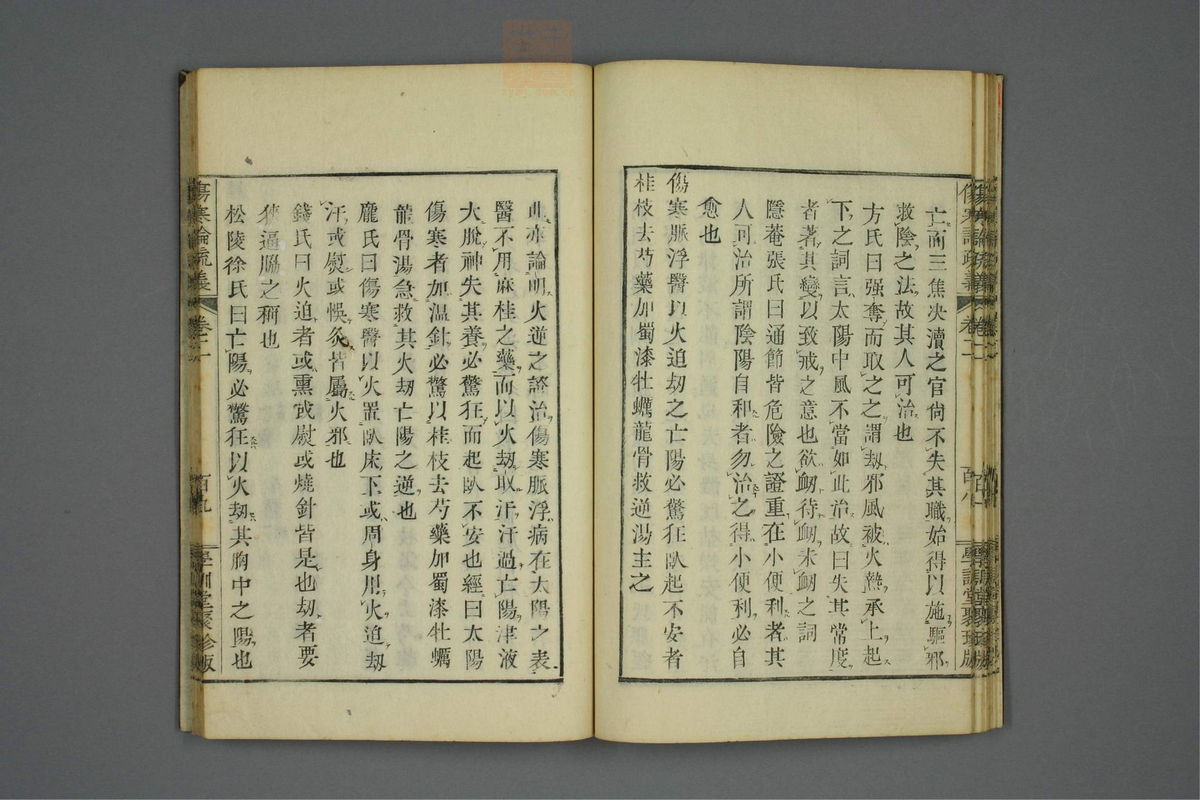 亡而三焦决瀆之官尙不失其職始得以施驅邪
救陰之法故其人可治也
方氏曰强奪而取之之謂劫邪風被火熱承上起
下之詞言太陽中風不當如此治故曰失其常度
者著其變以致戒之意也欲衂待衂未衂之詞
隱菴張氏曰通節皆危險之證重在小便利者其
人可治所謂陰陽自和者勿治之得小便利必自
愈也
傷寒脈浮醫以火迫劫之亡陽必驚狂臥起不安者
桂枝去芍藥加蜀漆牡蠣龍骨救逆湯主之
傷寒論疏義
卷二
百八
學訓堂聚珍版
此亦論明火逆之證治傷寒脈浮病在太陽之表
醫不用麻桂之藥而以火劫取汗汗過亡陽津液
大脫神失其養必驚狂而起臥不安也經曰太陽
傷寒者加温針必驚以桂枝去芍藥加蜀漆牡蠣
龍骨湯急救其火劫亡陽之逆也
龐氏曰傷寒醫以火置臥床下或周身用火迫劫
汗或熨或悞灸皆屬火邪也
錢氏曰火迫者或熏或熨或燒針皆是也劫者要
挾逼脇之稱也
松陵徐氏曰亡陽必驚狂以火劫其胸中之陽也
傷寒論疏義
卷二
百九
學訓堂聚珍版